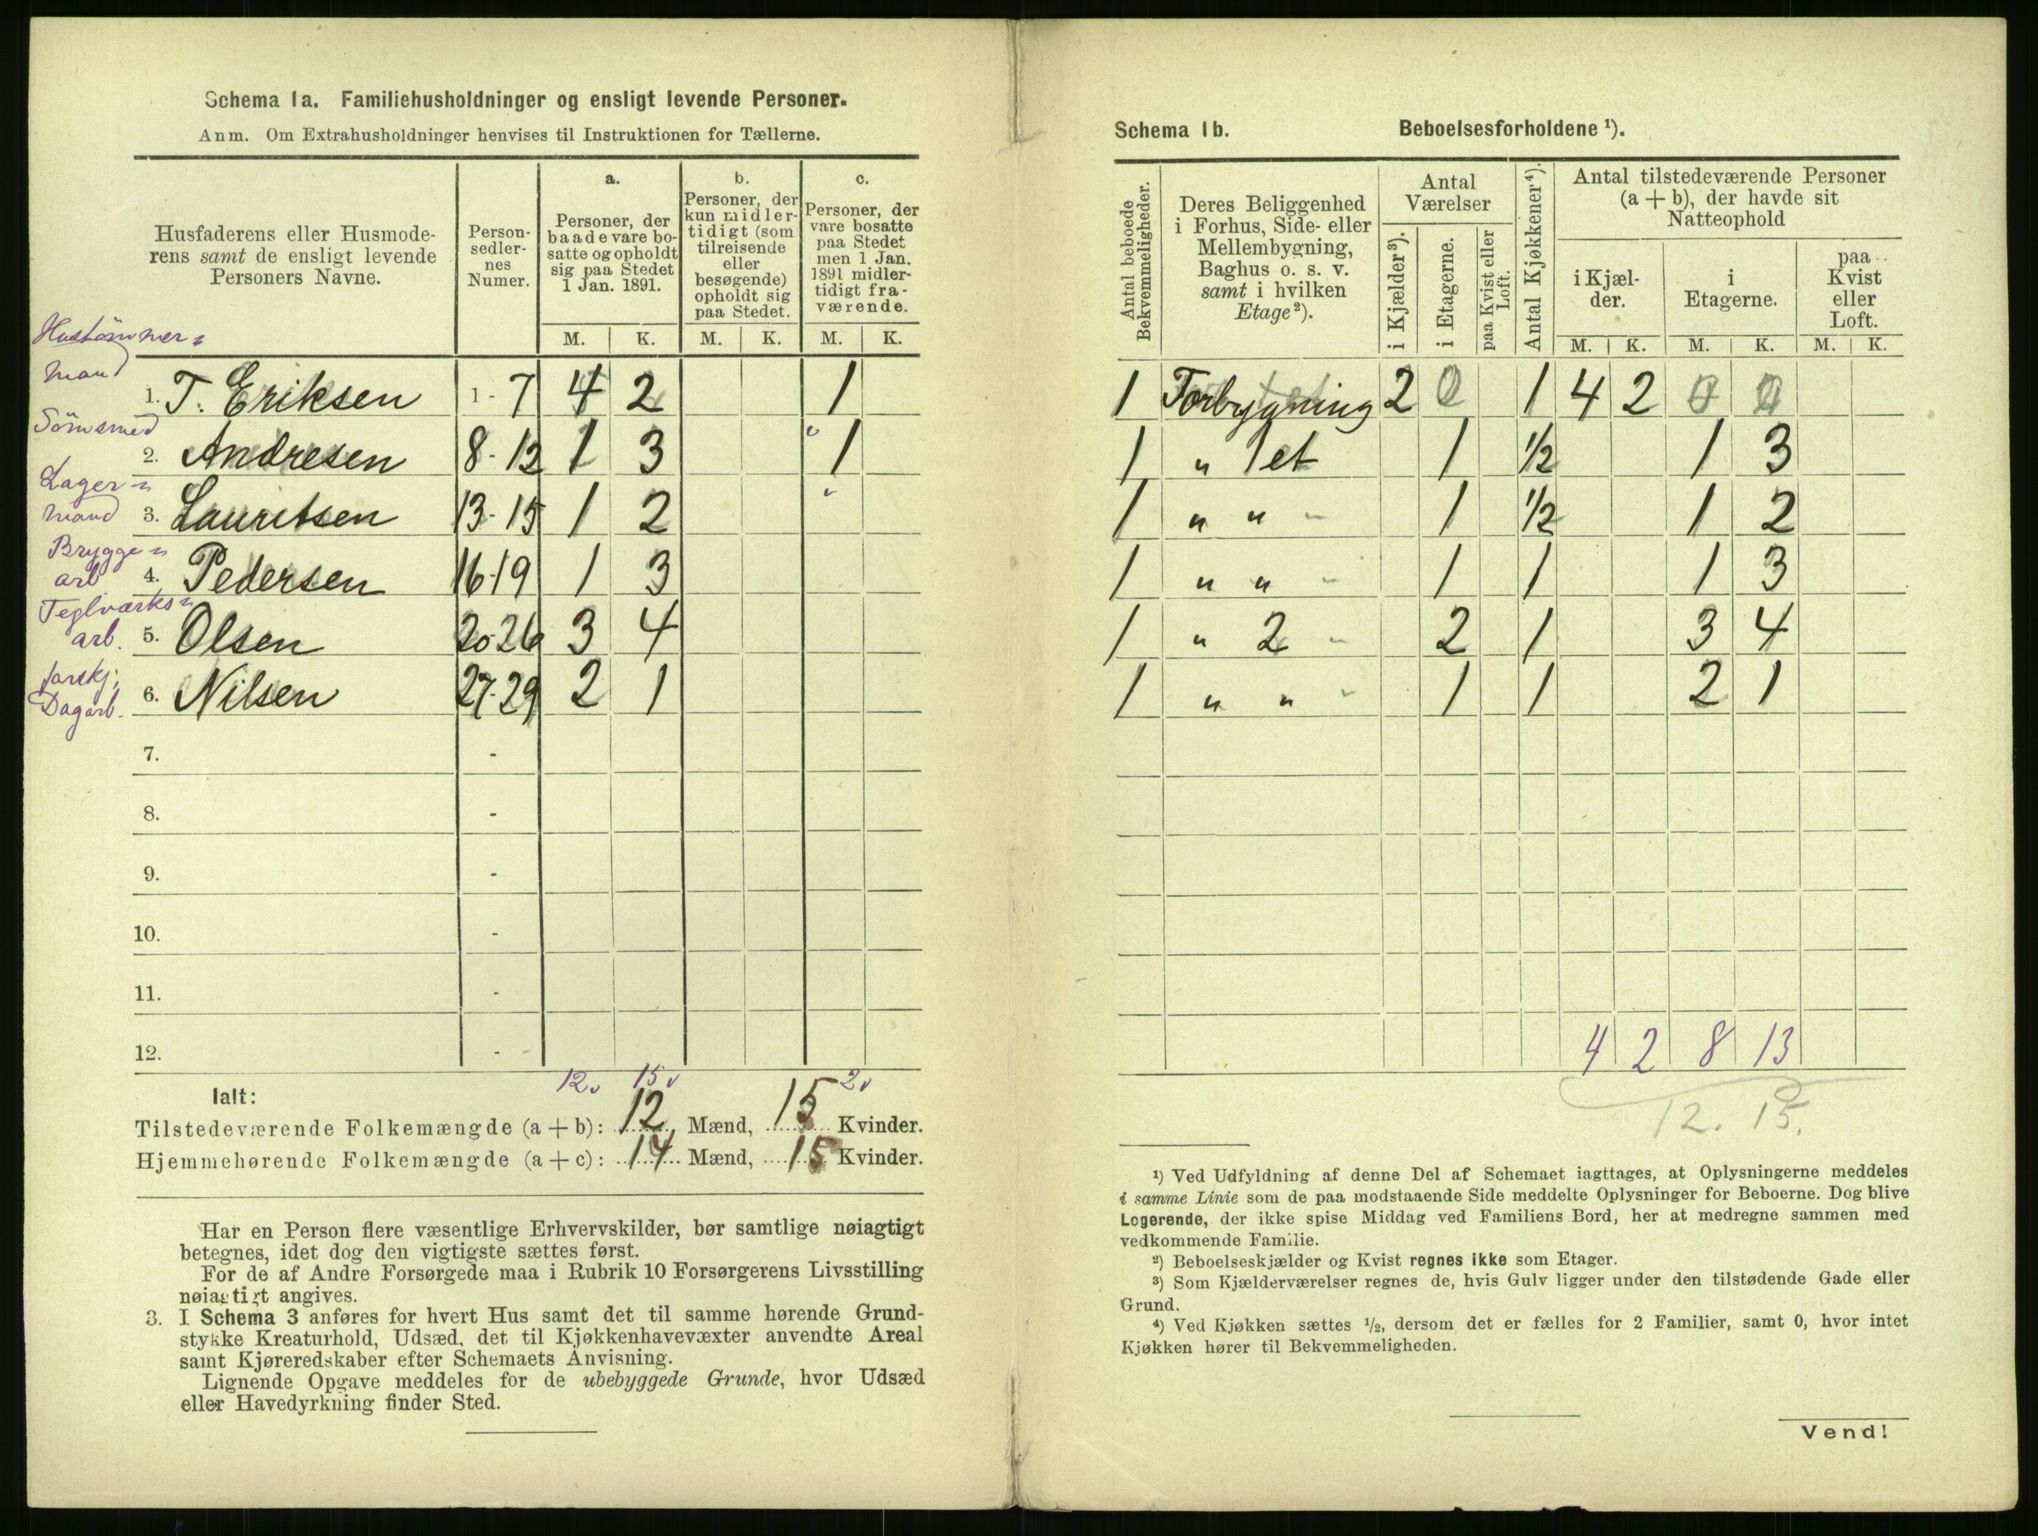 Schema 1a. Familiehusholdninger og ensligt levende Personer.
Anm. Om Extrahusholdninger henvises til Instruktionen for Tællerne.
Husfaderens eller Husmode-
rens samt de ensligt levende
Personers Navne.
Person-
sedler-
nes
Numer.
a.
Personer, der
baade vare bo-
satte og opholdt
sig paa Stedet
1 Jan. 1891.
b.
Personer, der
kun midler-
tidigt (som
tilreisende
eller
besøgende)
opholdt sig
paa Stedet.
c.
Personer, der
vare bosatte
paa Stedet
men 1 Jan.
1891 midler-
tidigt fra-
værende.
M. K. M. K. M. K.
Hustömmer=
mand
1. T. Eriksen 1 - 7 4 2 1
Sömsmed
2. Andresen 8 - 12 1 3 1
Lager=
mand
3. Lauritsen 13 - 15 1 2
Brygge=
arb
4. Pedersen 16 - 19 1 3
Teglværks=
arb.
5. Olsen 20 - 26 3 4
forskj.
Dagarb.
6. Nilsen 27 - 29 2 1
7. -
8. -
9. -
10. -
11. -
12. -
12 v 15 v 2 v
Ialt:
Tilstedeværende Folkemængde (a + b): 12 Mænd, 15 Kvinder.
Hjemmehørende Folkemængde (a + c): 14 Mænd, 15 Kvinder.
Har en Person flere væsentlige Erhvervskilder, bør samtlige nøiagtigt
betegnes, idet dog den vigtigste sættes først.
For de af Andre Forsørgede maa i Rubrik 10 Forsørgerens Livsstilling
nøiagtigt angives.
3. I Schema 3 anføres for hvert Hus samt det til samme hørende Grund-
stykke Kreaturhold, Udsæd, det til Kjøkkenhavevæxter anvendte Areal
samt Kjøreredskaber efter Schemaets Anvisning.
Lignende Opgave meddeles for de ubebyggede Grunde, hvor Udsæd
eller Havedyrkning finder Sted.
Schema 1b. Beboelsesforholdene ¹).
Antal beboede
Bekvemmeligheder.
Deres Beliggenhed
i Forhus, Side- eller
Mellembygning,
Baghus o. s. v.
samt i hvilken
Etage²).
Antal
Værelser
i Kjælder³).
i Etagerne.
paa Kvist eller
Loft.
Antal Kjøkkener⁴).
Antal tilstedeværende Personer
(a + b), der havde sit
Natteophold
i Kjæl-
der.
i
Etagerne.
paa
Kvist
eller
Loft.
M. K. M. K. M. K.
1 Forbygning 2 0 1 4 2 0 0
1 " 1 et 1 1/2 1 3
1 " " - 1 1/2 1 2
1 " " - 1 1 1 3
1 " 2 - 2 1 3 4
1 " " - 1 1 2 1
4 2 8 13
12. 15.
¹) Ved Udfyldning af denne Del af Schemaet iagttages, at Oplysningerne meddeles
i samme Linie som de paa modstaaende Side meddelte Oplysninger for Beboerne. Dog blive
Logerende, der ikke spise Middag ved Familiens Bord, her at medregne sammen med
vedkommende Familie.
²) Beboelseskjælder og Kvist regnes ikke som Etager.
³) Som Kjælderværelser regnes de, hvis Gulv ligger under den tilstødende Gade eller
Grund.
⁴) Ved Kjøkken sættes ½, dersom det er fælles for 2 Familier, samt 0, hvor intet
Kjøkken hører til Bekvemmeligheden.
Vend!